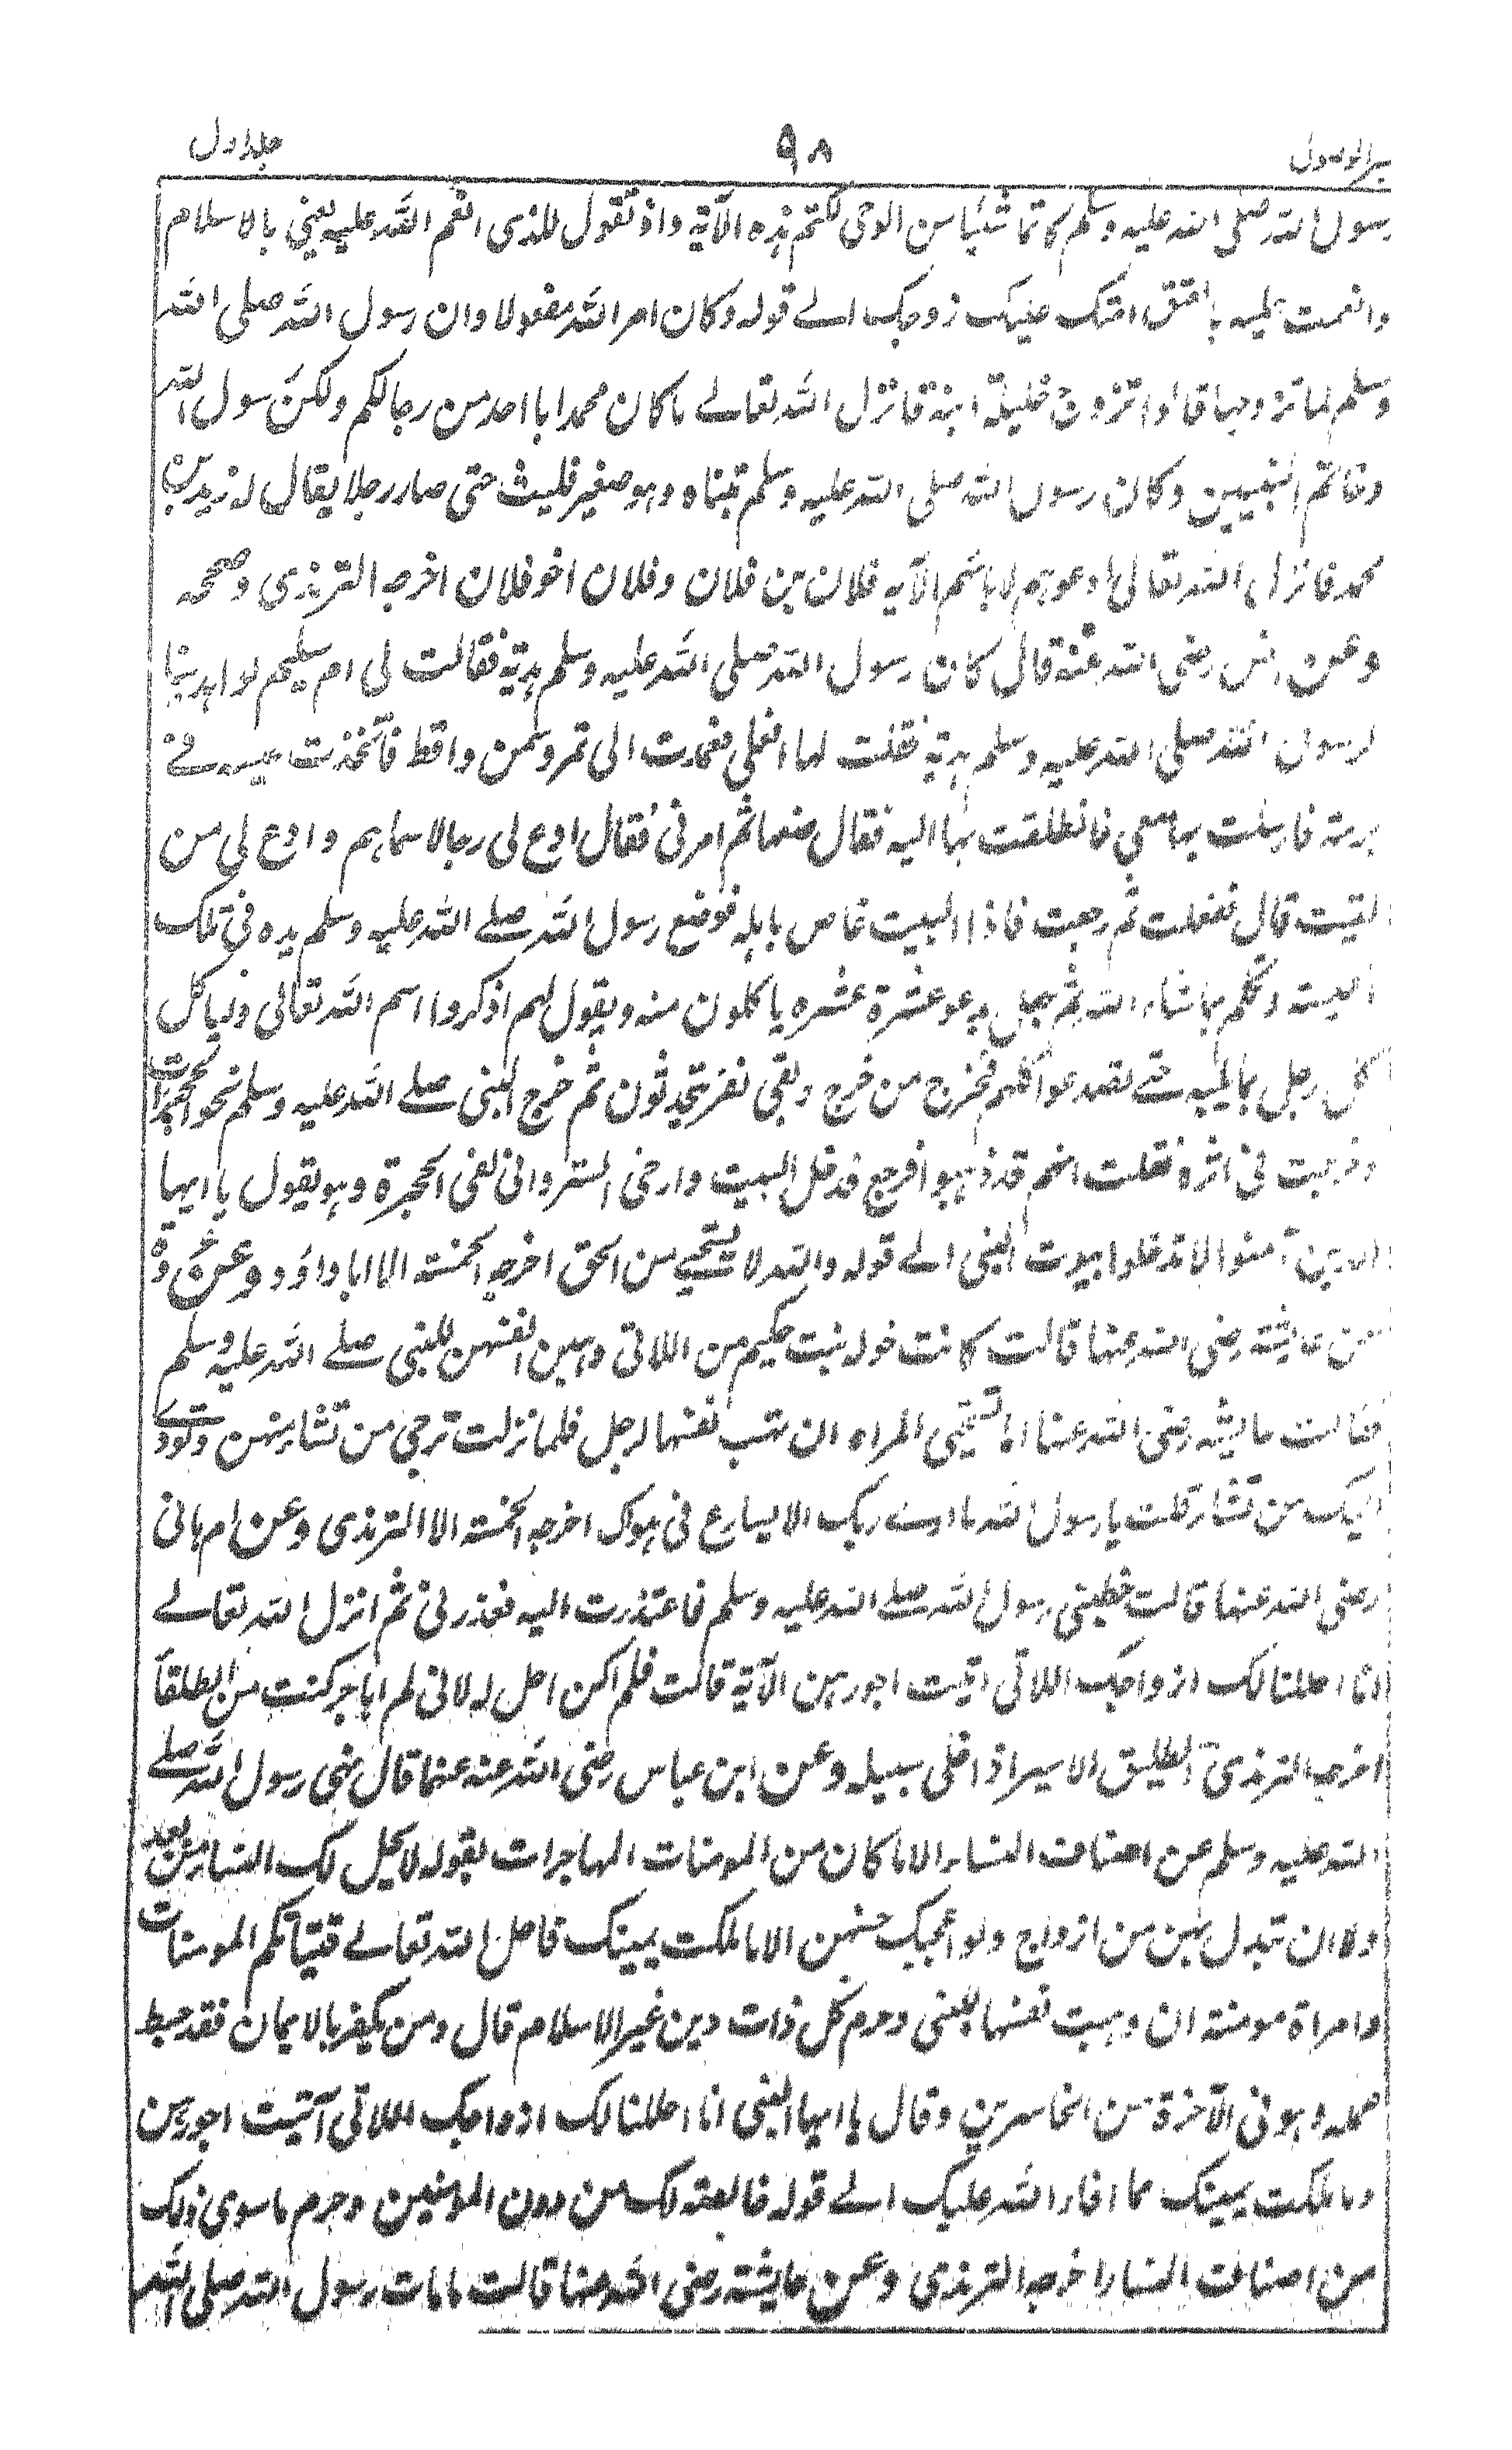 جلد اول ٩٨ تيسير الوصول
رسول الله صلى الله عليه وسلم كاتما شيئا من الوحى لكتم هذه الآية واذ تقول للذى انعم الله عليه يعنى بالاسلام
وانعمت عليه بالعتق امسك عليك زوجك الے قوله وكان امر الله مفعولا وان رسول الله صلى الله
وسلم لما تزوجها قالوا تزوج حليلة ابنه فانزل الله تعالے ما كان محمد ابا احد من رجالكم ولكن رسول الله
وخاتم النبيين وكان رسول الله صلى الله عليه وسلم تبناه وهو صغير فلبث حتى صار رجلا يقال له زيد بن
محمد فانزل الله تعالى ادعوهم لابائهم الآيه فلان بن فلان وفلان اخو فلان اخرجه الترمذى وصححه
وعن انس رضى الله عنه قال كان رسول الله صلى الله عليه وسلم هدية فقالت لى ام سليم لو اهدينا
لرسول الله صلى الله عليه وسلم هدية فقلت لها افعلى فعمدت الى تمر وسمن واقط فاتخذت حيسه فے
برمة فارسلت بها معى فانطلقت بها اليه فقال ضعها ثم امرنى فقال ادع لى رجالا سماهم وادع لى من
لقيت قال ففعلت ثم رجعت فاذا البيت غاص باهله فوضع رسول الله صلے الله عليه وسلم يده فى تلك
الحيسة وتكلم بما شاء الله ثم جعل يدعو عشرة عشره ياكلون منه ويقول لهم اذكروا اسم الله تعالى ولياكل
كل رجل مما يليه حتے تصدعوا كلهم فخرج من خرج وبقى نفر يتحدثون ثم خرج النبى صلے الله عليه وسلم نحو الحجرات
وخرجت فى اثره فقلت انهم قد ذهبوا فرجع فدخل البيت وارخى الستر وانى لفى الحجرة وهو يقول يا ايها
الذين آمنوا لا تدخلوا بيوت النبى الے قوله والله لا يستحيے من الحق اخرجه الخمسة الا ابا داود وعن عروة
عن عائشة رضى الله عنها قالت كانت خوله بنت حكيم من اللاتى وهبن انفسهن للنبى صلے الله عليه وسلم
فقالت عائشه رضى الله عنها اما تستحيى المراه ان تهب نفسها لرجل فلما نزلت ترجى من تشاء منهن وتؤوى
اليك من تشاء قلت يا رسول الله ما ارى ربك الا يسارع فى هواك اخرجه الخمسة الا الترمذى وعن ام هانى
رضى الله عنها قالت خطبنى رسول الله صلے الله عليه وسلم فاعتذرت اليه فعذرنى ثم انزل الله تعالے
انا احللنا لك ازواجك اللاتى اتيت اجورهن الآية قالت فلم اكن احل له لانى لم اهاجر كنت من الطلقآ
اخرجه الترمذى الطليق الاسير اذا خلى سبيله وعن ابن عباس رضى الله عنه عنهما قال نهى رسول الله صلے
الله عليه وسلم عن اصناف النساء الا ما كان من المومنات المهاجرات بقوله لا يحل لك النساء من بعد
ولا ان تبدل بهن من ازواج ولو اعجبك حسنهن الا ما ملكت يمينك فاحل الله تعالے فتياتكم المومنات
وامراة مومنة ان وهبت نفسها للنبى وحرم كل ذات دين غير الاسلام قال ومن يكفر بالايمان فقد حبط
عمله وهو فى الآخرة من الخاسرين وقال يا ايها النبى انا احللنا لك ازواجك اللاتى آتيت اجورهن
وما ملكت يمينك مما افاء الله عليك الے قوله خالصة لك من دون المؤمنين وحرم ما سوى ذلك
من اصناف النساء اخرجه الترمذى وعن عايشة رضى الله عنها قالت ما مات رسول الله صلى الله